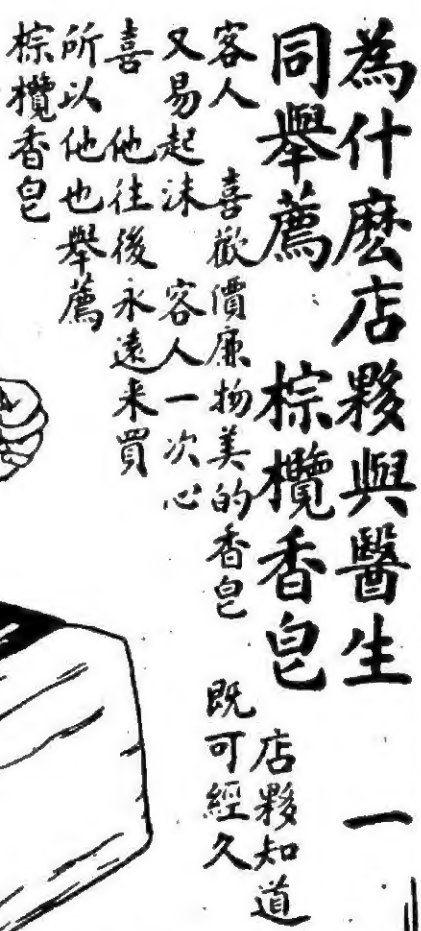 為什麽店夥與醫生 一
同舉薦 棕欖香皂 店夥知道
客人 喜歡價廉物美的香皂 既可經久
又易起沫 客人一次心
喜 他往後永遠来買
所以他也舉薦
棕欖香皂